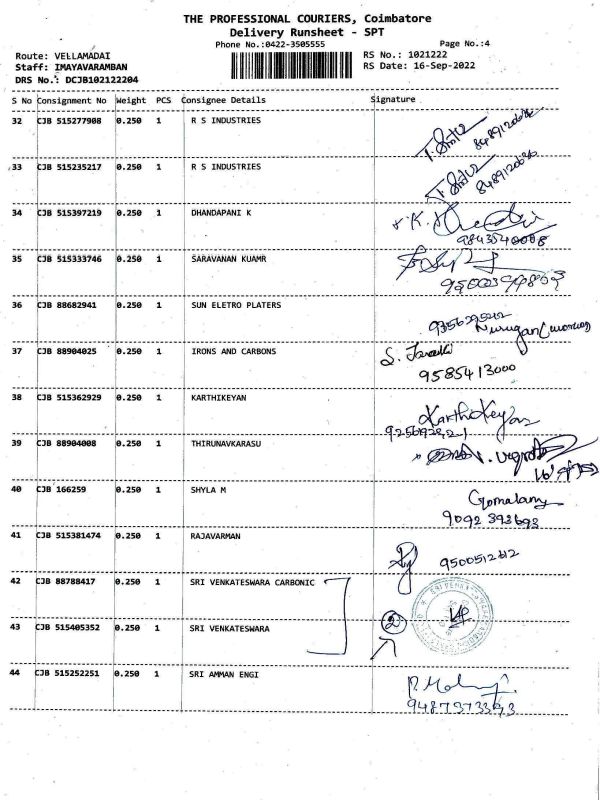 THE PROFESSIONAL COURIERS, Coimbatore
Delivery Runsheet - SPT
Phone No.:0422-3505555
Page No.:4
Route: VELLAMADAI
RS No.: 1021222
Staff: IMAYAVARAMBAN
RS Date: 16-Sep-2022
DRS No.: DCJB102122204
S No Consignment No Weight PCS Consignee Details Signature
32 CJB 515277908 0.250 1 R S INDUSTRIES
33 CJB 515235217 0.250 1 R S INDUSTRIES
34 CJB 515397219 0.250 1 DHANDAPANI K
35 CJB 515333746 0.250 1 SARAVANAN KUAMR
36 CJB 88682941 0.250 1 SUN ELETRO PLATERS
37 CJB 88904025 0.250 1 IRONS AND CARBONS
9585413000
38 CJB 515362929 0.250 1 KARTHIKEYAN
KarthiKeyan
39 CJB 88904008 0.250 1 THIRUNAVKARASU
40 CJB 166259 0.250 1 SHYLA M
Gomalany
9092 392693
41 CJB 515381474 0.250 1 RAJAVARMAN
9500512612
42 CJB 88788417 0.250 1 SRI VENKATESWARA CARBONIC
43 CJB 515405352 0.250 1 SRI VENKATESWARA
2
44 CJB 515252251 0.250 1 SRI AMMAN ENGI
9487973393